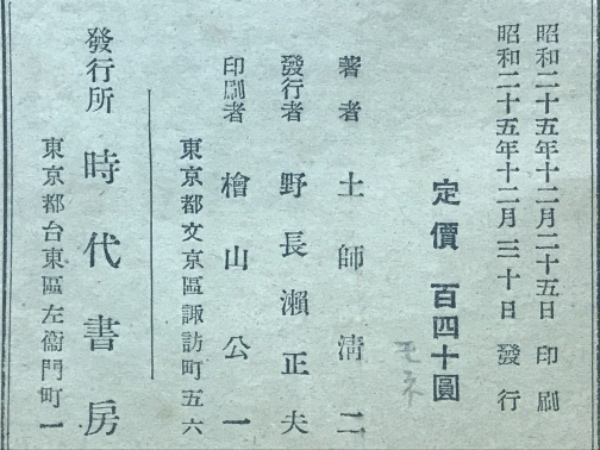 昭和二十五年十二月二十五日 印刷
昭和二十五年十二月三十日 發行
定價 百四十圓
モネ
著者 土師清二
發行者 野長瀨正夫
印刷者 檜山公一
東京都文京區諏訪町五六
發行所 時代書房
東京都台東區左衞門町一